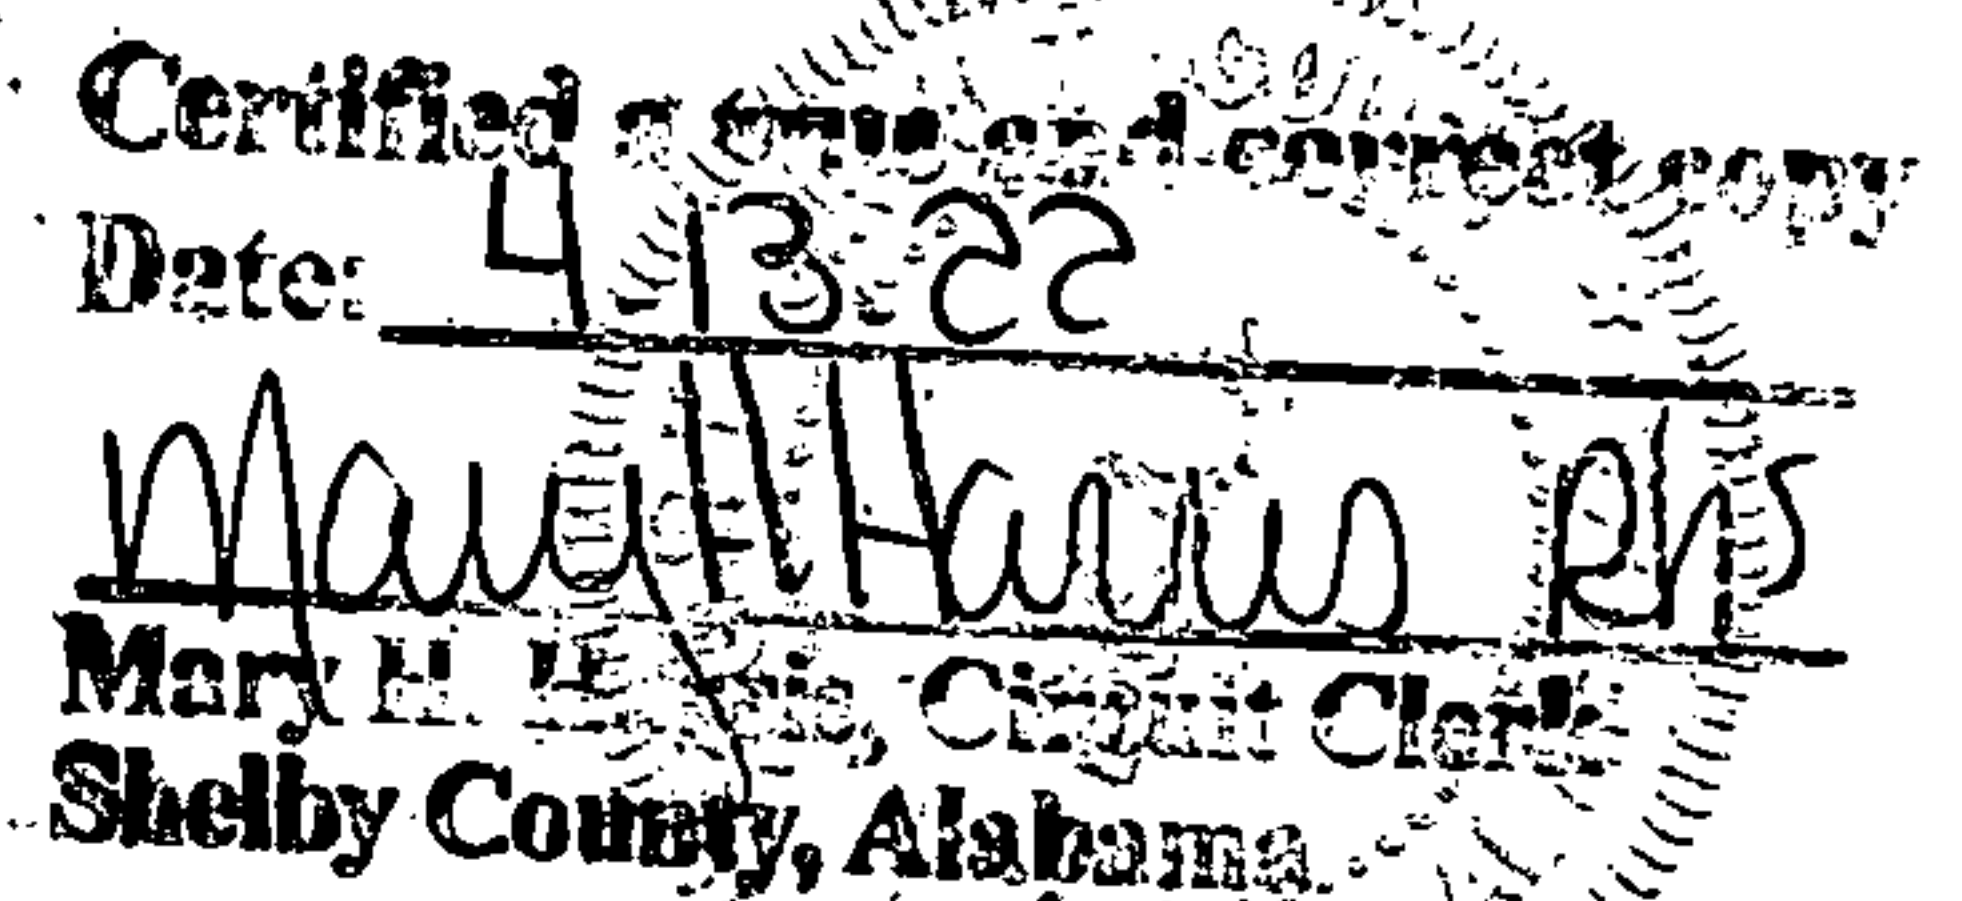 Certified a true and correct copy
Date: 4 13 22
Mary H Harris
Mary H. Harris, Circuit Clerk
Shelby County, Alabama